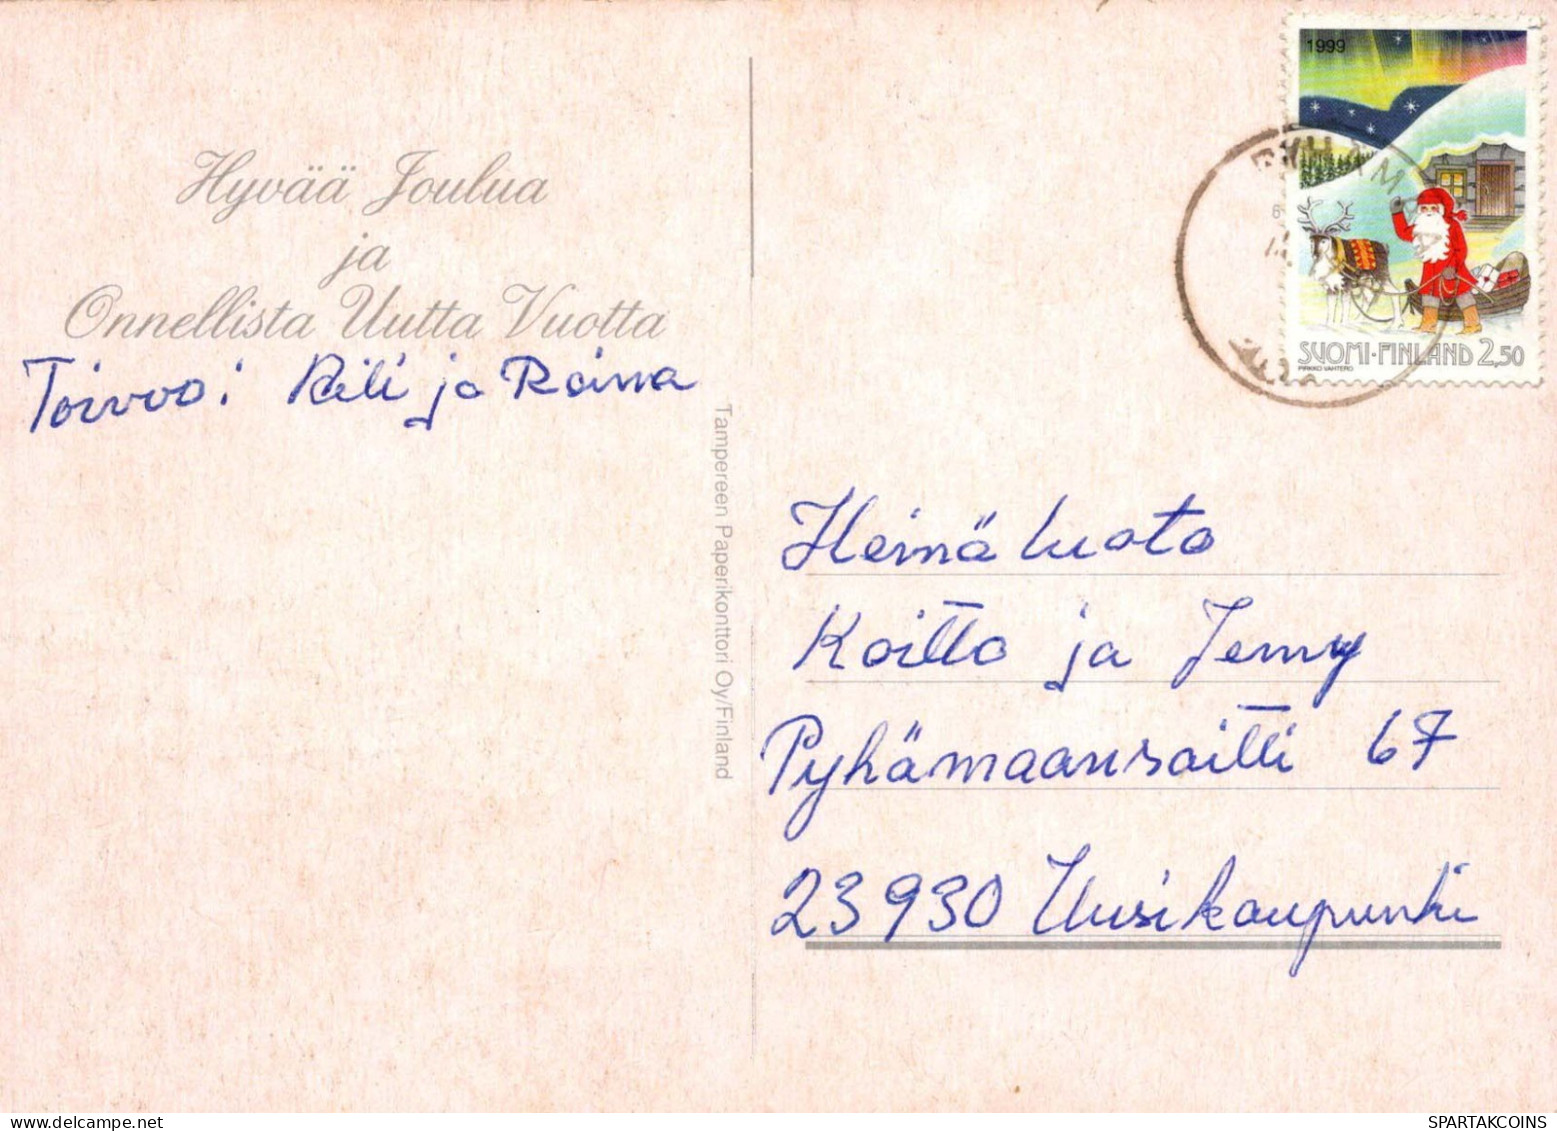 Hyvää Joulua
ja
Onnellista Uutta Vuotta
Toivoo: Rili ja Raima
Tampereen Paperikonttori Oy/Finland
1999
SUOMI-FINLAND 2,50
PIRKKO VAHTERO
Heinäluoto
Koitto ja Jenny
Pyhämaansaitti 67
23930 Uusikaupunki
SPARTAKCOINS